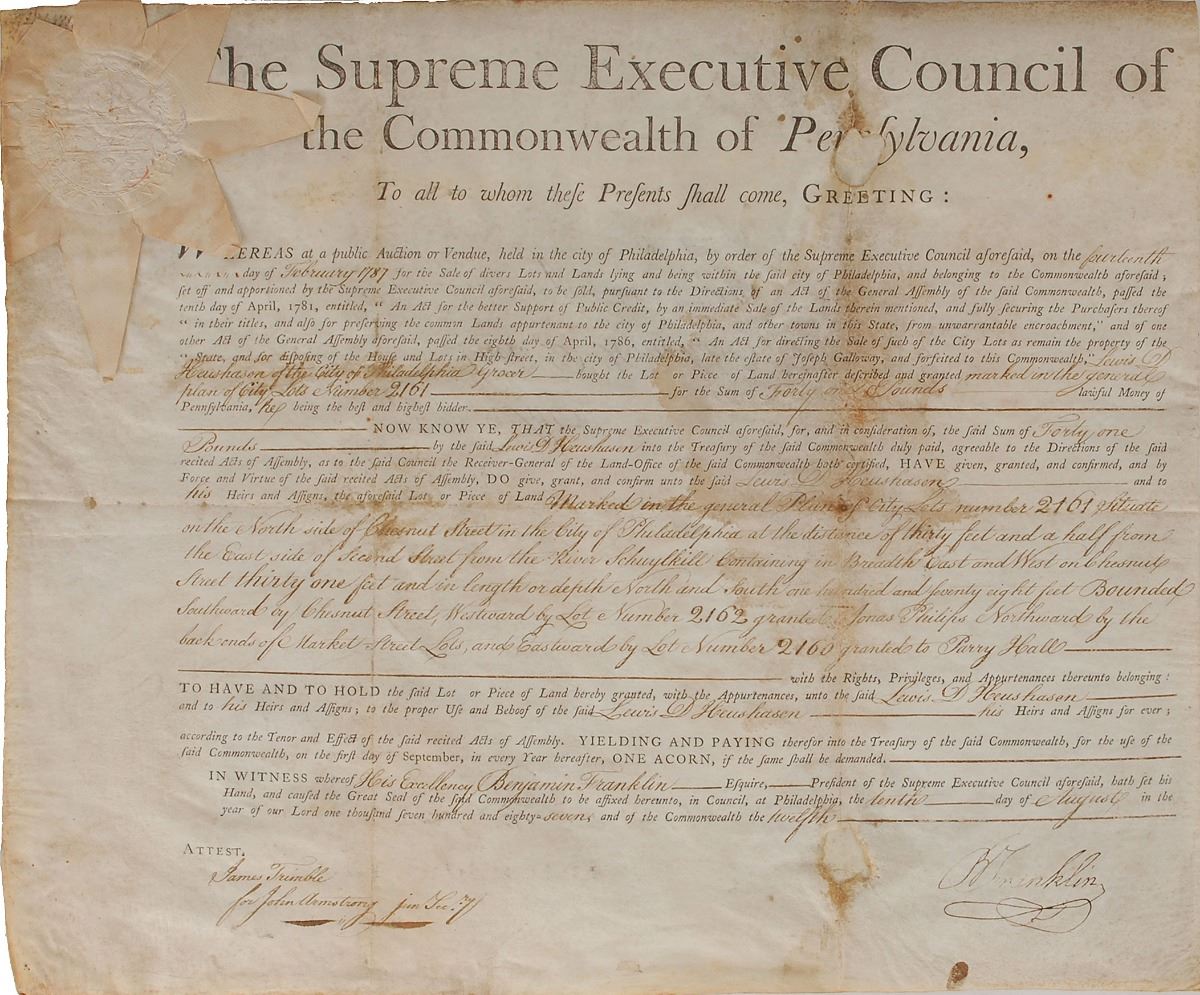 The Supreme Executive Council of
the Commonwealth of Pennſylvania,
To all to whom theſe Preſents ſhall come, GREETING:
WHEREAS at a public Auction or Vendue, held in the city of Philadelphia, by order of the Supreme Executive Council aforeſaid, on the fourteenth
day of February 1787 for the Sale of divers Lots and Lands lying and being within the ſaid city of Philadelphia, and belonging to the Commonwealth aforeſaid;
ſet off and apportioned by the Supreme Executive Council aforeſaid, to be ſold, purſuant to the Directions of an Act of the General Aſſembly of the ſaid Commonwealth, paſſed the
tenth day of April, 1781, entitled, “ An Act for the better Support of Public Credit, by an immediate Sale of the Lands therein mentioned, and fully ſecuring the Purchaſers thereof
“ in their titles, and alſo for preſerving the common Lands appurtenant to the city of Philadelphia, and other towns in this State, from unwarrantable encroachment,” and of one
other Act of the General Aſſembly aforeſaid, paſſed the eighth day of April, 1786, entitled, “ An Act for directing the Sale of ſuch of the City Lots as remain the property of the
“ State, and for diſpoſing of the Houſe and Lots in High-ſtreet, in the city of Philadelphia, late the eſtate of Joſeph Galloway, and forfeited to this Commonwealth,” Lewis D
Heushasen of the City of Philadelphia Grocer bought the Lot or Piece of Land hereinafter deſcribed and granted marked in the general
plan of City Lots Number 2161 for the Sum of Forty one Pounds lawful Money of
Pennſylvania, he being the beſt and higheſt bidder.
NOW KNOW YE, THAT the Supreme Executive Council aforeſaid, for, and in conſideration of, the ſaid Sum of Forty one
Pounds by the ſaid Lewis D Heushasen into the Treaſury of the ſaid Commonwealth duly paid, agreeable to the Directions of the ſaid
recited Acts of Aſſembly, as to the ſaid Council the Receiver-General of the Land-Office of the ſaid Commonwealth hath certified, HAVE given, granted, and confirmed, and by
Force and Virtue of the ſaid recited Acts of Aſſembly, DO give, grant, and confirm unto the ſaid Lewis D Heushasen and to
his Heirs and Aſſigns, the aforeſaid Lot or Piece of Land Marked in the general Plan of City Lots number 2161 Situate
on the North side of Chesnut Street in the City of Philadelphia at the distance of thirty feet and a half from
the East side of Second Street from the River Schuylkill Containing in Breadth East and West on Chesnut
Street thirty one feet and in length or depth North and South one hundred and seventy eight feet Bounded
Southward by Chesnut Street, Westward by Lot Number 2162 granted to Jonas Philips Northward by the
back ends of Market Street Lots, and Eastward by Lot Number 2160 granted to Parry Hall
with the Rights, Privileges, and Appurtenances thereunto belonging:
TO HAVE AND TO HOLD the ſaid Lot or Piece of Land hereby granted, with the Appurtenances, unto the ſaid Lewis D Heushasen
and to his Heirs and Aſſigns; to the proper Uſe and Behoof of the ſaid Lewis D Heushasen his Heirs and Aſſigns for ever;
according to the Tenor and Effect of the ſaid recited Acts of Aſſembly. YIELDING AND PAYING therefor into the Treaſury of the ſaid Commonwealth, for the uſe of the
ſaid Commonwealth, on the firſt day of September, in every Year hereafter, ONE ACORN, if the ſame ſhall be demanded.
IN WITNESS whereof His Excellency Benjamin Franklin Eſquire, Preſident of the Supreme Executive Council aforeſaid, hath ſet his
Hand, and cauſed the Great Seal of the ſaid Commonwealth to be affixed hereunto, in Council, at Philadelphia, the tenth day of August in the
year of our Lord one thouſand ſeven hundred and eighty-seven, and of the Commonwealth the twelfth
ATTEST.
James Trimble
for John Armstrong jun Sec:ry
B Franklin